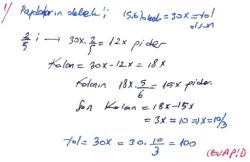 1) Paydaların ekoku; (5,6) okek = 30x = yol olsun
2/5 i → 30x · 2/5 = 12x gider
Kalan = 30x - 12x = 18x
Kalanın 18x · 5/6 = 15x gider.
Son Kalan = 18x - 15x
= 3x = 10 ⇒ x = 10/3
Yol = 30x = 30 · 10/3 = 100
(CEVAP: D)